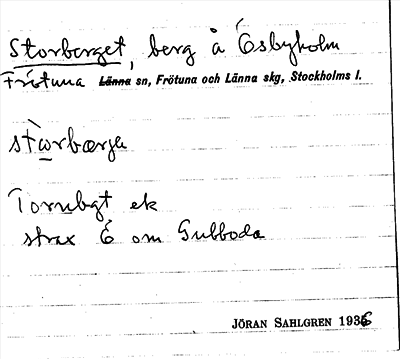 Storberget, berg å Ösbyholm
Frötuna Länna sn, Frötuna och Länna skg, Stockholms l.
stωrbærga
Tornbgt ek
strax Ö om Gubboda
JÖRAN SAHLGREN 1936